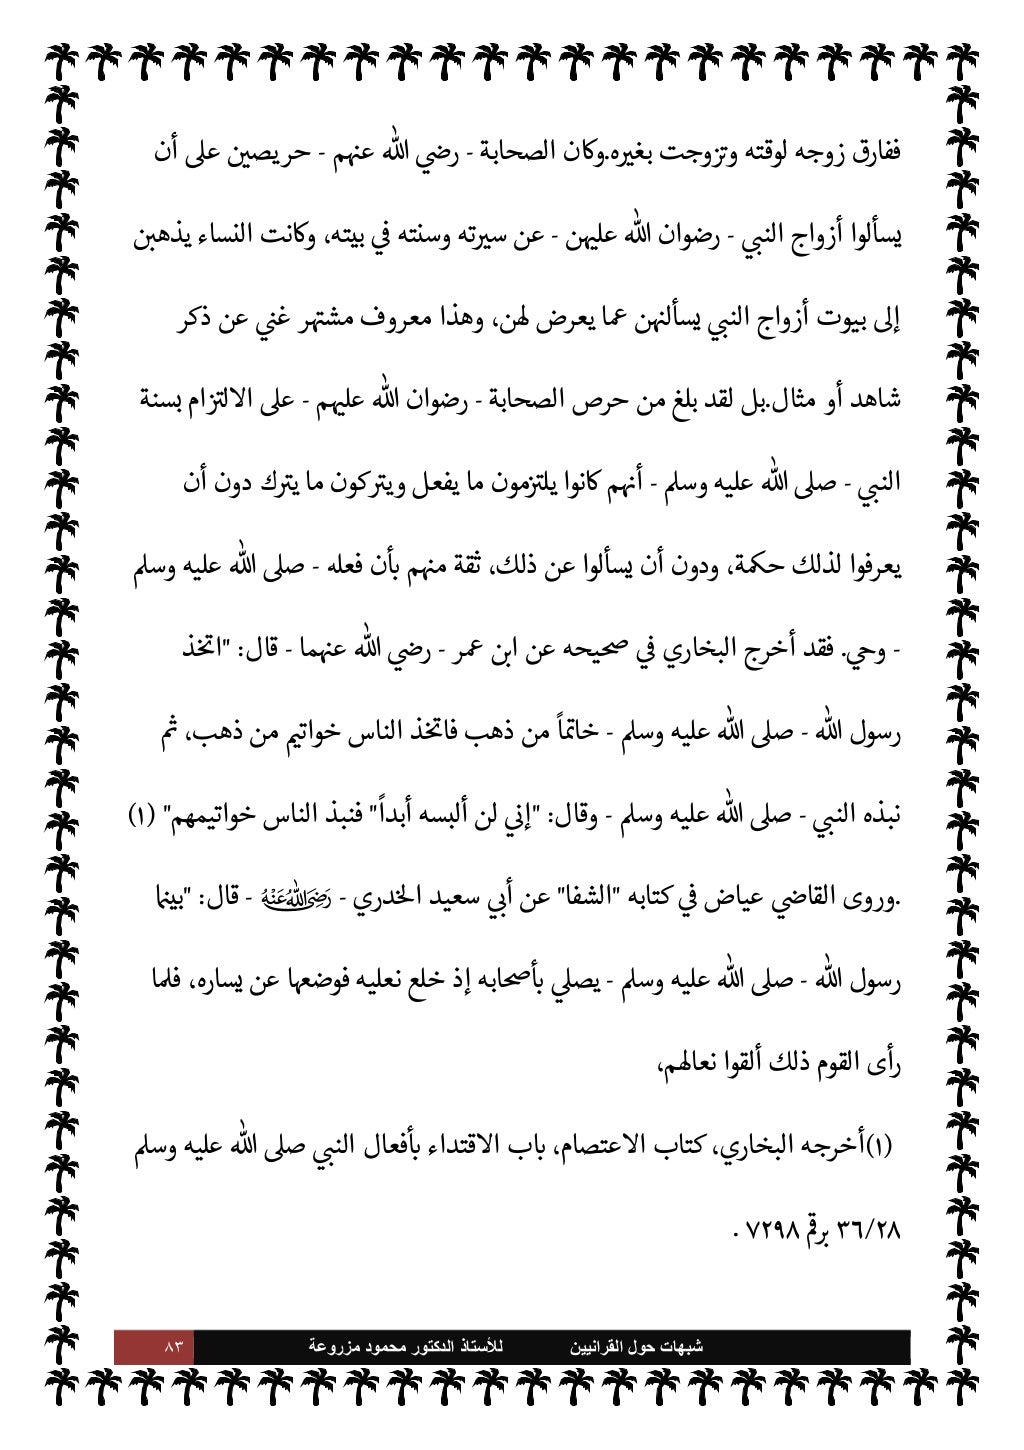 ففارق زوجه لوقته وتزوجت بغيره.وكان الصحابة - رضي الله عنهم - حريصين على أن
يسألوا أزواج النبي - رضوان الله عليهن - عن سيرته وسنته في بيته، وكانت النساء يذهبن
إلى بيوت أزواج النبي يسألنهن عما يعرض لهن، وهذا معروف مشتهر غني عن ذكر
شاهد أو مثال.بل لقد بلغ من حرص الصحابة - رضوان الله عليهم - على الالتزام بسنة
النبي - صلى الله عليه وسلم - أنهم كانوا يلتزمون ما يفعل ويتركون ما يترك دون أن
يعرفوا لذلك حكمة، ودون أن يسألوا عن ذلك، ثقة منهم بأن فعله - صلى الله عليه وسلم
- وحي. فقد أخرج البخاري في صحيحه عن ابن عمر - رضي الله عنهما - قال: "اتخذ
رسول الله - صلى الله عليه وسلم - خاتماً من ذهب فاتخذ الناس خواتيم من ذهب، ثم
نبذه النبي - صلى الله عليه وسلم - وقال: "إني لن ألبسه أبداً" فنبذ الناس خواتيمهم" (١)
.وروى القاضي عياض في كتابه "الشفا" عن أبي سعيد الخدري - رَضِيَ اللَّهُ عَنْهُ - قال: "بينما
رسول الله - صلى الله عليه وسلم - يصلي بأصحابه إذ خلع نعليه فوضعها عن يساره، فلما
رأى القوم ذلك ألقوا نعالهم،
(١)أخرجه البخاري، كتاب الاعتصام، باب الاقتداء بأفعال النبي صلى الله عليه وسلم
٣٦/٢٨ برقم ٧٢٩٨ .
شبهات حول القرانيين للأستاذ الدكتور محمود مزروعة ٨٣